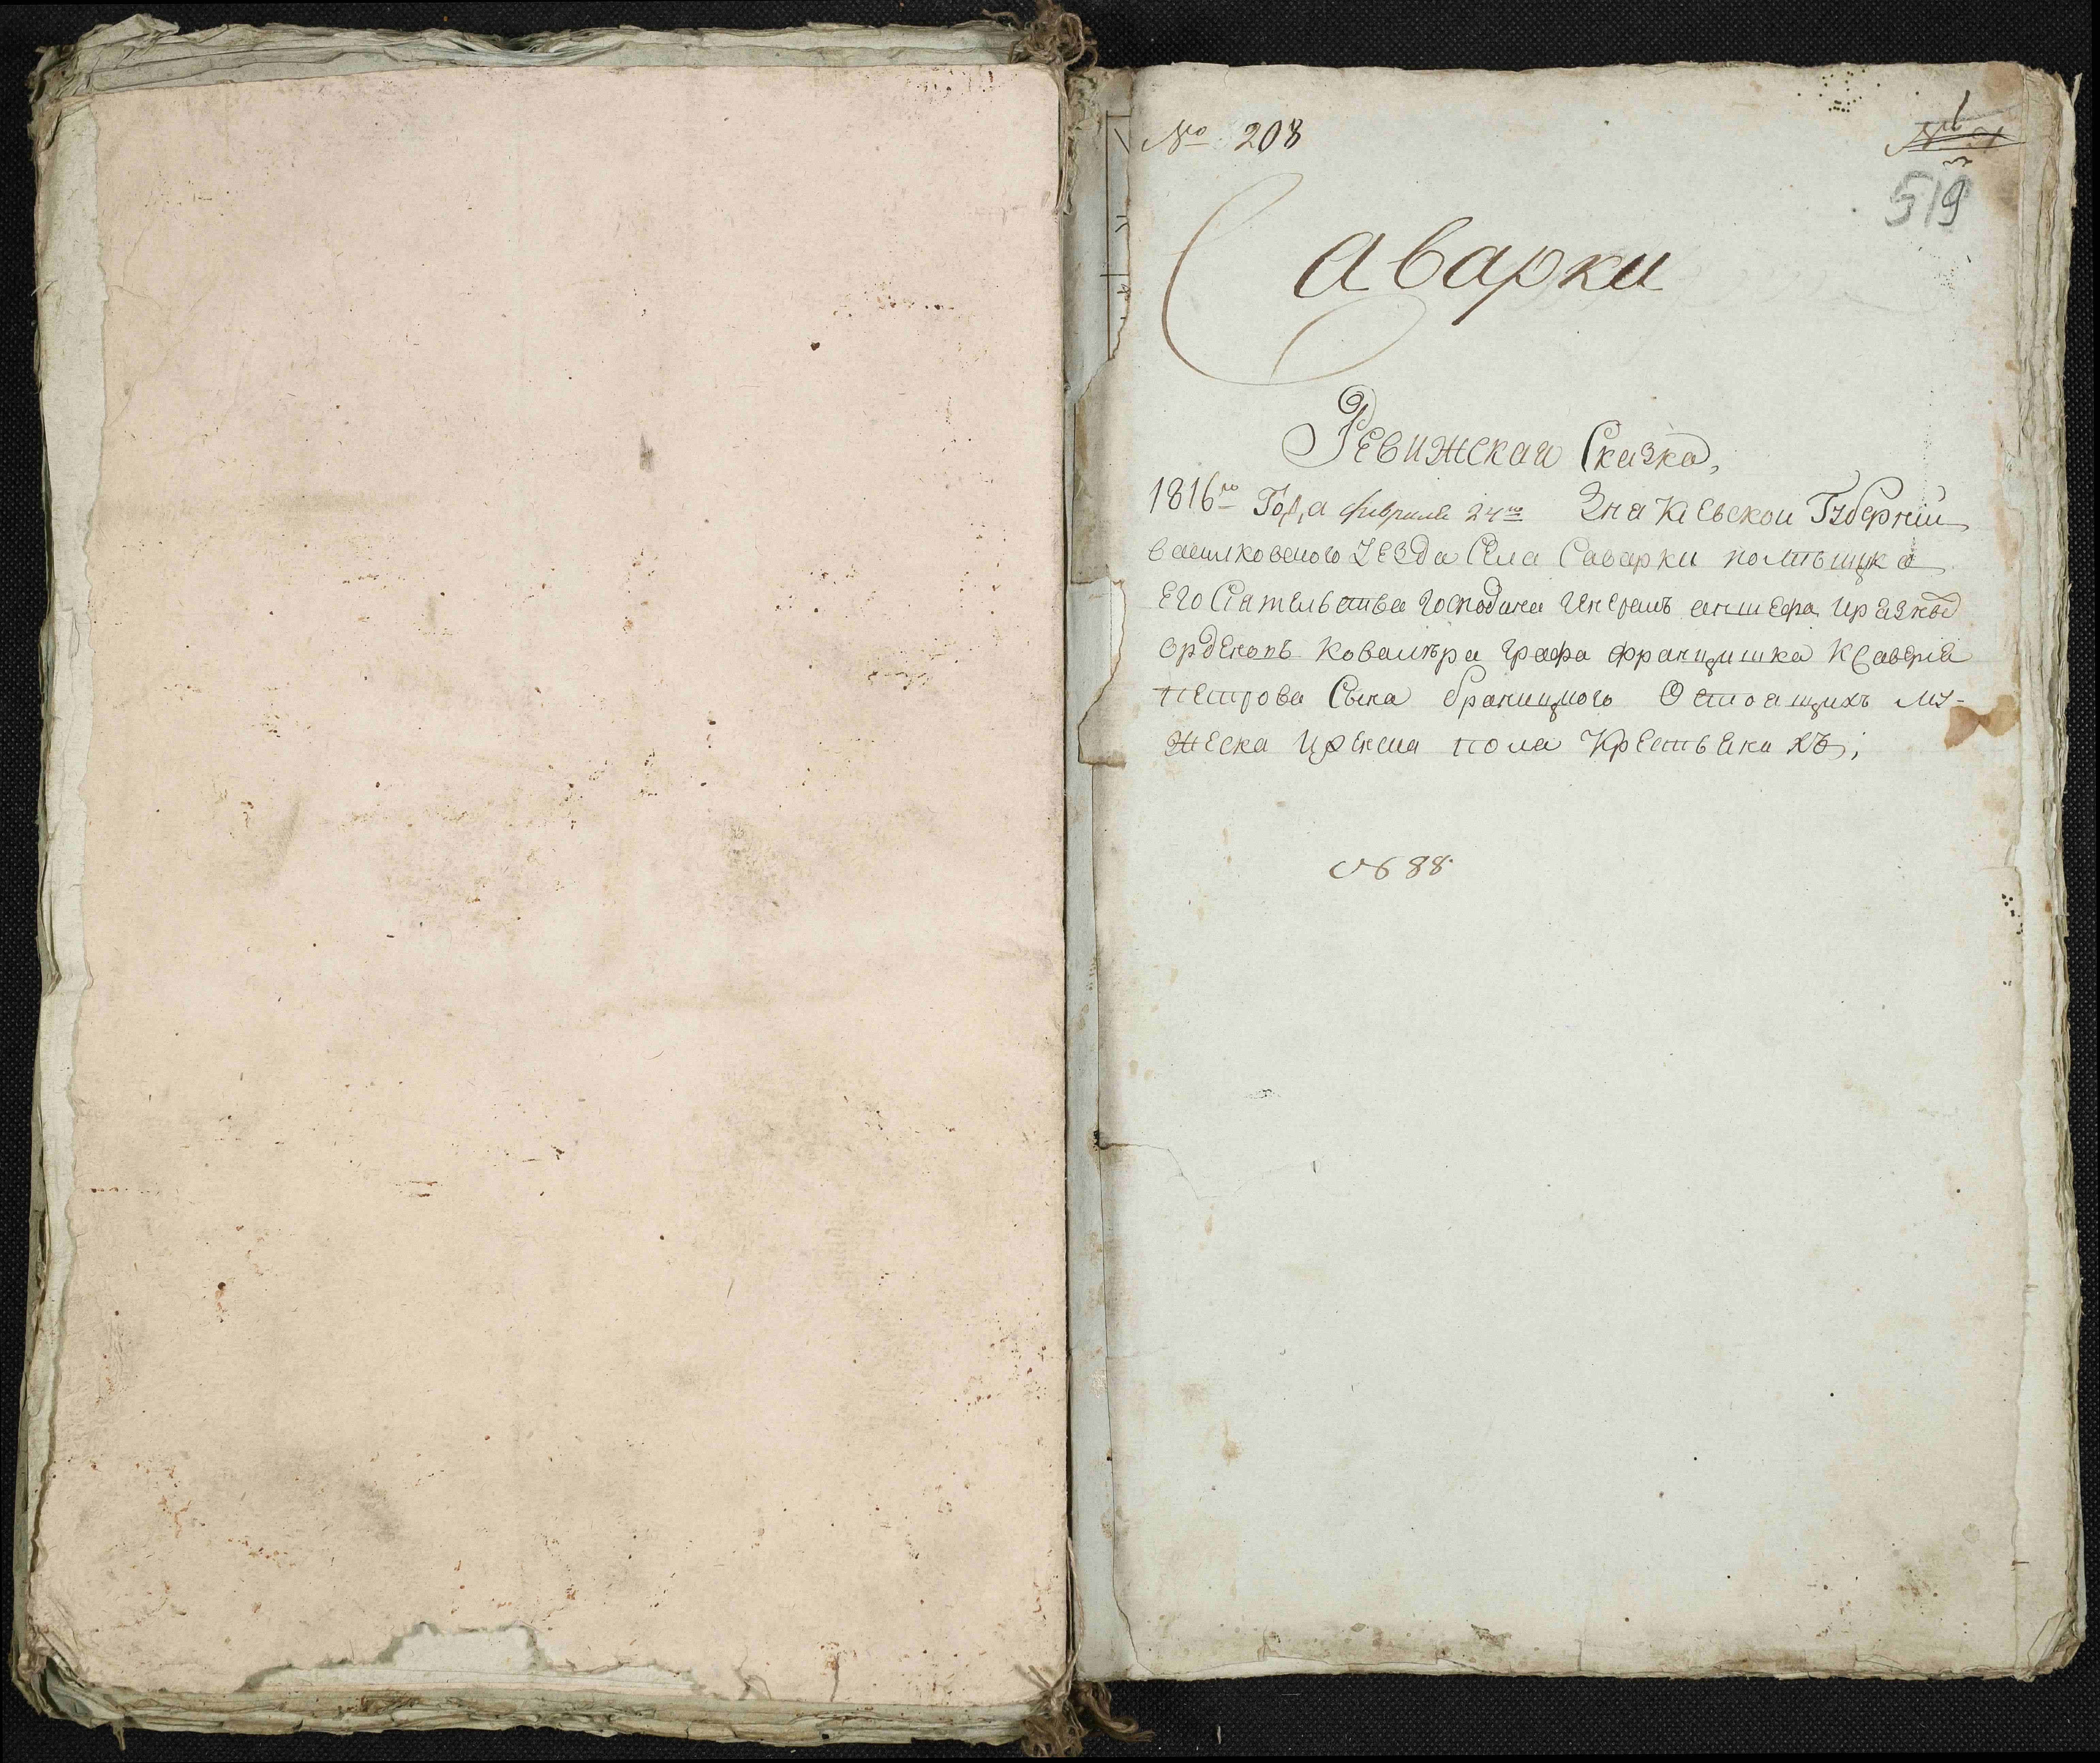 № 208
1
519
Саварки
Ревижская Сказка,
1816го Года февраля 24го Зна Киевской Губернии
василковского Уезда Села Саварки помъщика
Его Сіятельства Господина Генералъ аншефа иразныхъ
орденовъ Ковалѣра графа Францишка Ксаверія
петрова Сына браницкого О стоящихъ му-
жеска иженска пола Крестьянахъ;